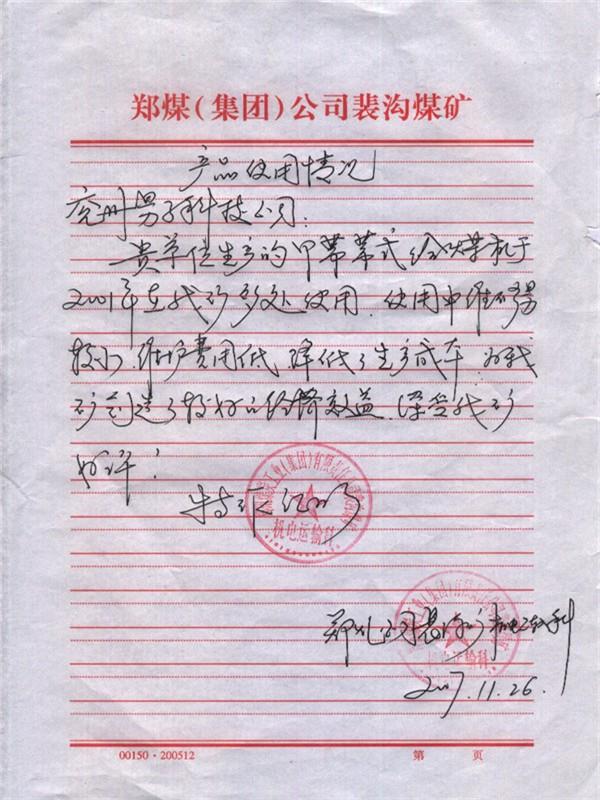 郑煤(集团)公司裴沟煤矿
产品使用情况
兖州男子科技公司:
贵单位生产的甲带式给煤机于
2001年在我矿多处使用。使用中维修量
较小,维护费用低,降低了生产成本,为我
矿创造了较好的经济效益,深受我矿
好评!
特此证明
机电运输科
郑煤公司裴沟矿机电运输科
机电运输科
2007.11.26.
00150·200512
第 页